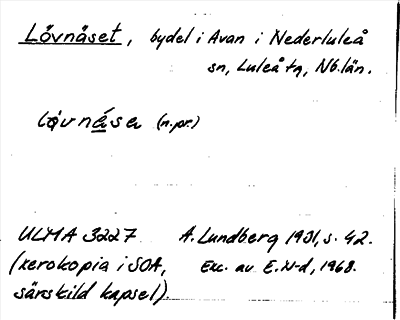 Lövnäset, bydel i Avan i Nederluleå
sn, Luleå tg, Nb.län.
løvnása (n.pr.)
ULMA 3227 A. Lundberg 1931, s. 42.
(xerokopia i SOA, Exc. av E.N-d, 1968.
särskild kapsel).